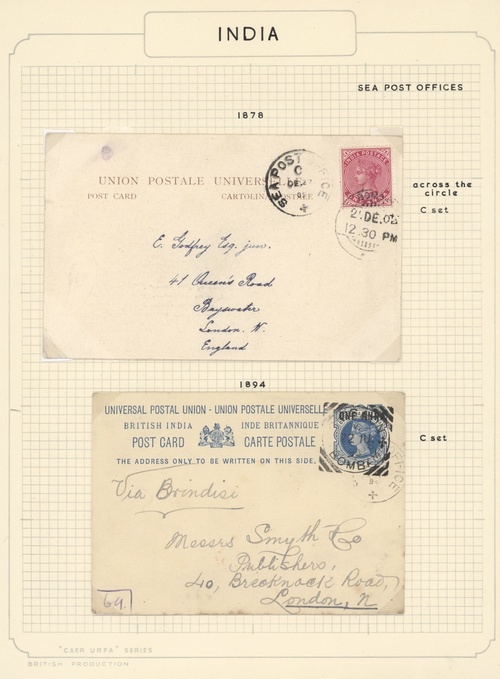 INDIA
SEA POST OFFICES
1878
UNION POSTALE UNIVERSELLE
POST CARD CARTOLINA POSTREE
SEA POST OFFICE
C
DE 27
INDIA POSTAGE
2.DE.02
12.30 PM
across the
circle
C set
E. Godfrey Esq. jun.
41 Queen's Road
Bayswater
London. W.
England
1894
UNIVERSAL POSTAL UNION - UNION POSTALE UNIVERSELLE
BRITISH INDIA INDE BRITANNIQUE
POST CARD CARTE POSTALE
THE ADDRESS ONLY TO BE WRITTEN ON THIS SIDE.
ONE ANNA
BOMBAY
C set
Via Brindisi
Messrs Smyth & Co
Publishers,
40, Brecknock Road,
London, N
64.
"CAER URFA" SERIES
BRITISH PRODUCTION